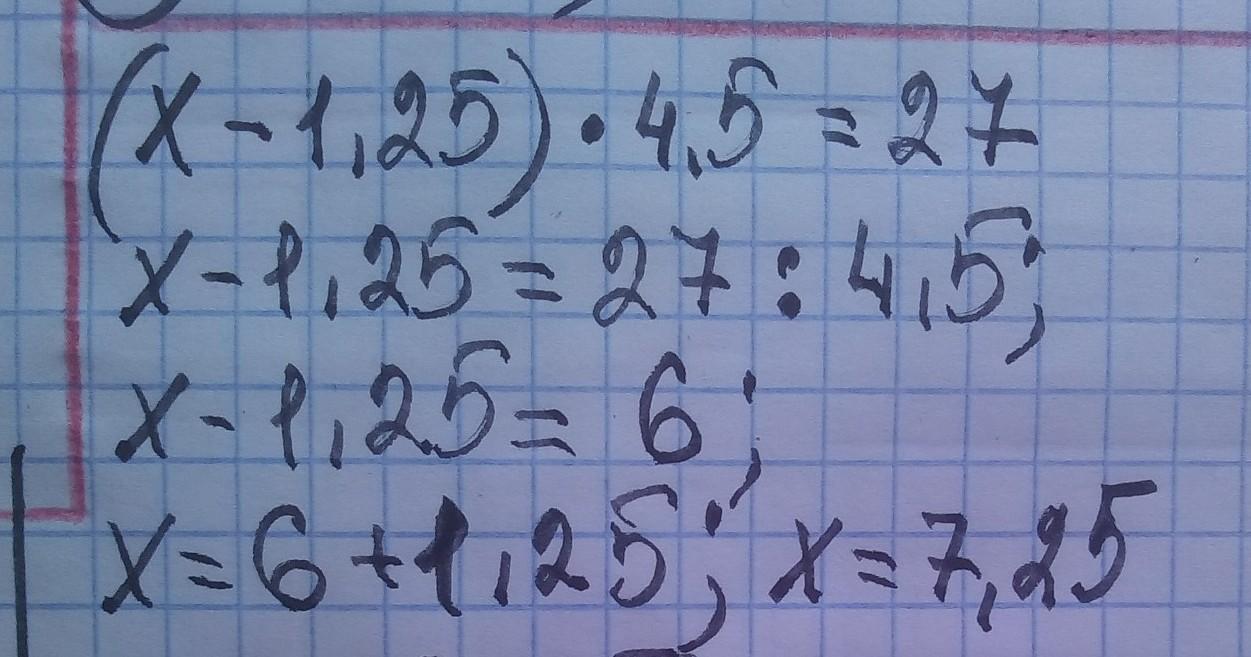 (x - 1,25) · 4,5 = 27
x - 1,25 = 27 : 4,5;
x - 1,25 = 6;
x = 6 + 1,25; x = 7,25